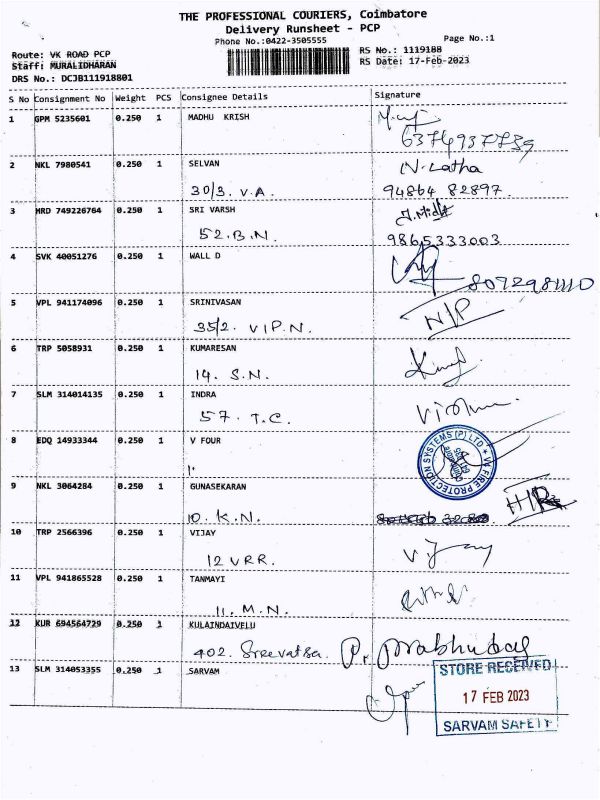 THE PROFESSIONAL COURIERS, Coimbatore
Delivery Runsheet - PCP
Phone No.:0422-3505555
Page No.:1
Route: VK ROAD PCP
RS No.: 1119188
Staff: MURALIDHARAN
RS Date: 17-Feb-2023
DRS No.: DCJB111918801
S No Consignment No Weight PCS Consignee Details Signature
1 GPM 5235601 0.250 1 MADHU KRISH
2 NKL 7980541 0.250 1 SELVAN N. Latha
30/3. V.A. 94864 82897.
3 MRD 749226764 0.250 1 SRI VARSH
52.B.N. 9865333003
4 SVK 40051276 0.250 1 WALL D
5 VPL 941174096 0.250 1 SRINIVASAN N/P
35/2. VIP.N.
6 TRP 5058931 0.250 1 KUMARESAN
14. S.N.
7 SLM 314014135 0.250 1 INDRA
57. T.C.
8 EDQ 14933344 0.250 1 V FOUR
V4 FIRE PROTECTION SYSTEMS (P) LTD
9 NKL 3064284 0.250 1 GUNASEKARAN
10. K.N.
10 TRP 2566396 0.250 1 VIJAY Vijay
12 VRR.
11 VPL 941865528 0.250 1 TANMAYI
11. M.N.
12 KUR 694564729 0.250 1 KULAINDAIVELU
402. Sreevatsa.
13 SLM 314053355 0.250 1 SARVAM
STORE RECEIVED
17 FEB 2023
SARVAM SAFETY